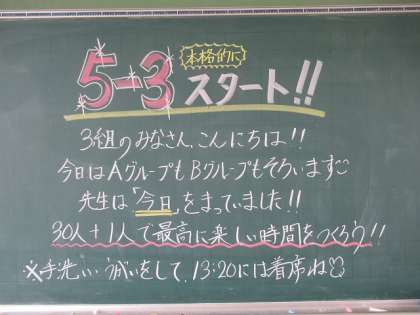 5-3 本格的に スタート!!
3組のみなさん、こんにちは!!
今日はAグループもBグループもそろいます
先生は「今日」をまっていました!!
30人+1人で最高に楽しい時間をつくろう!!
※手洗い、うがいをして、13:20には着席ね♡